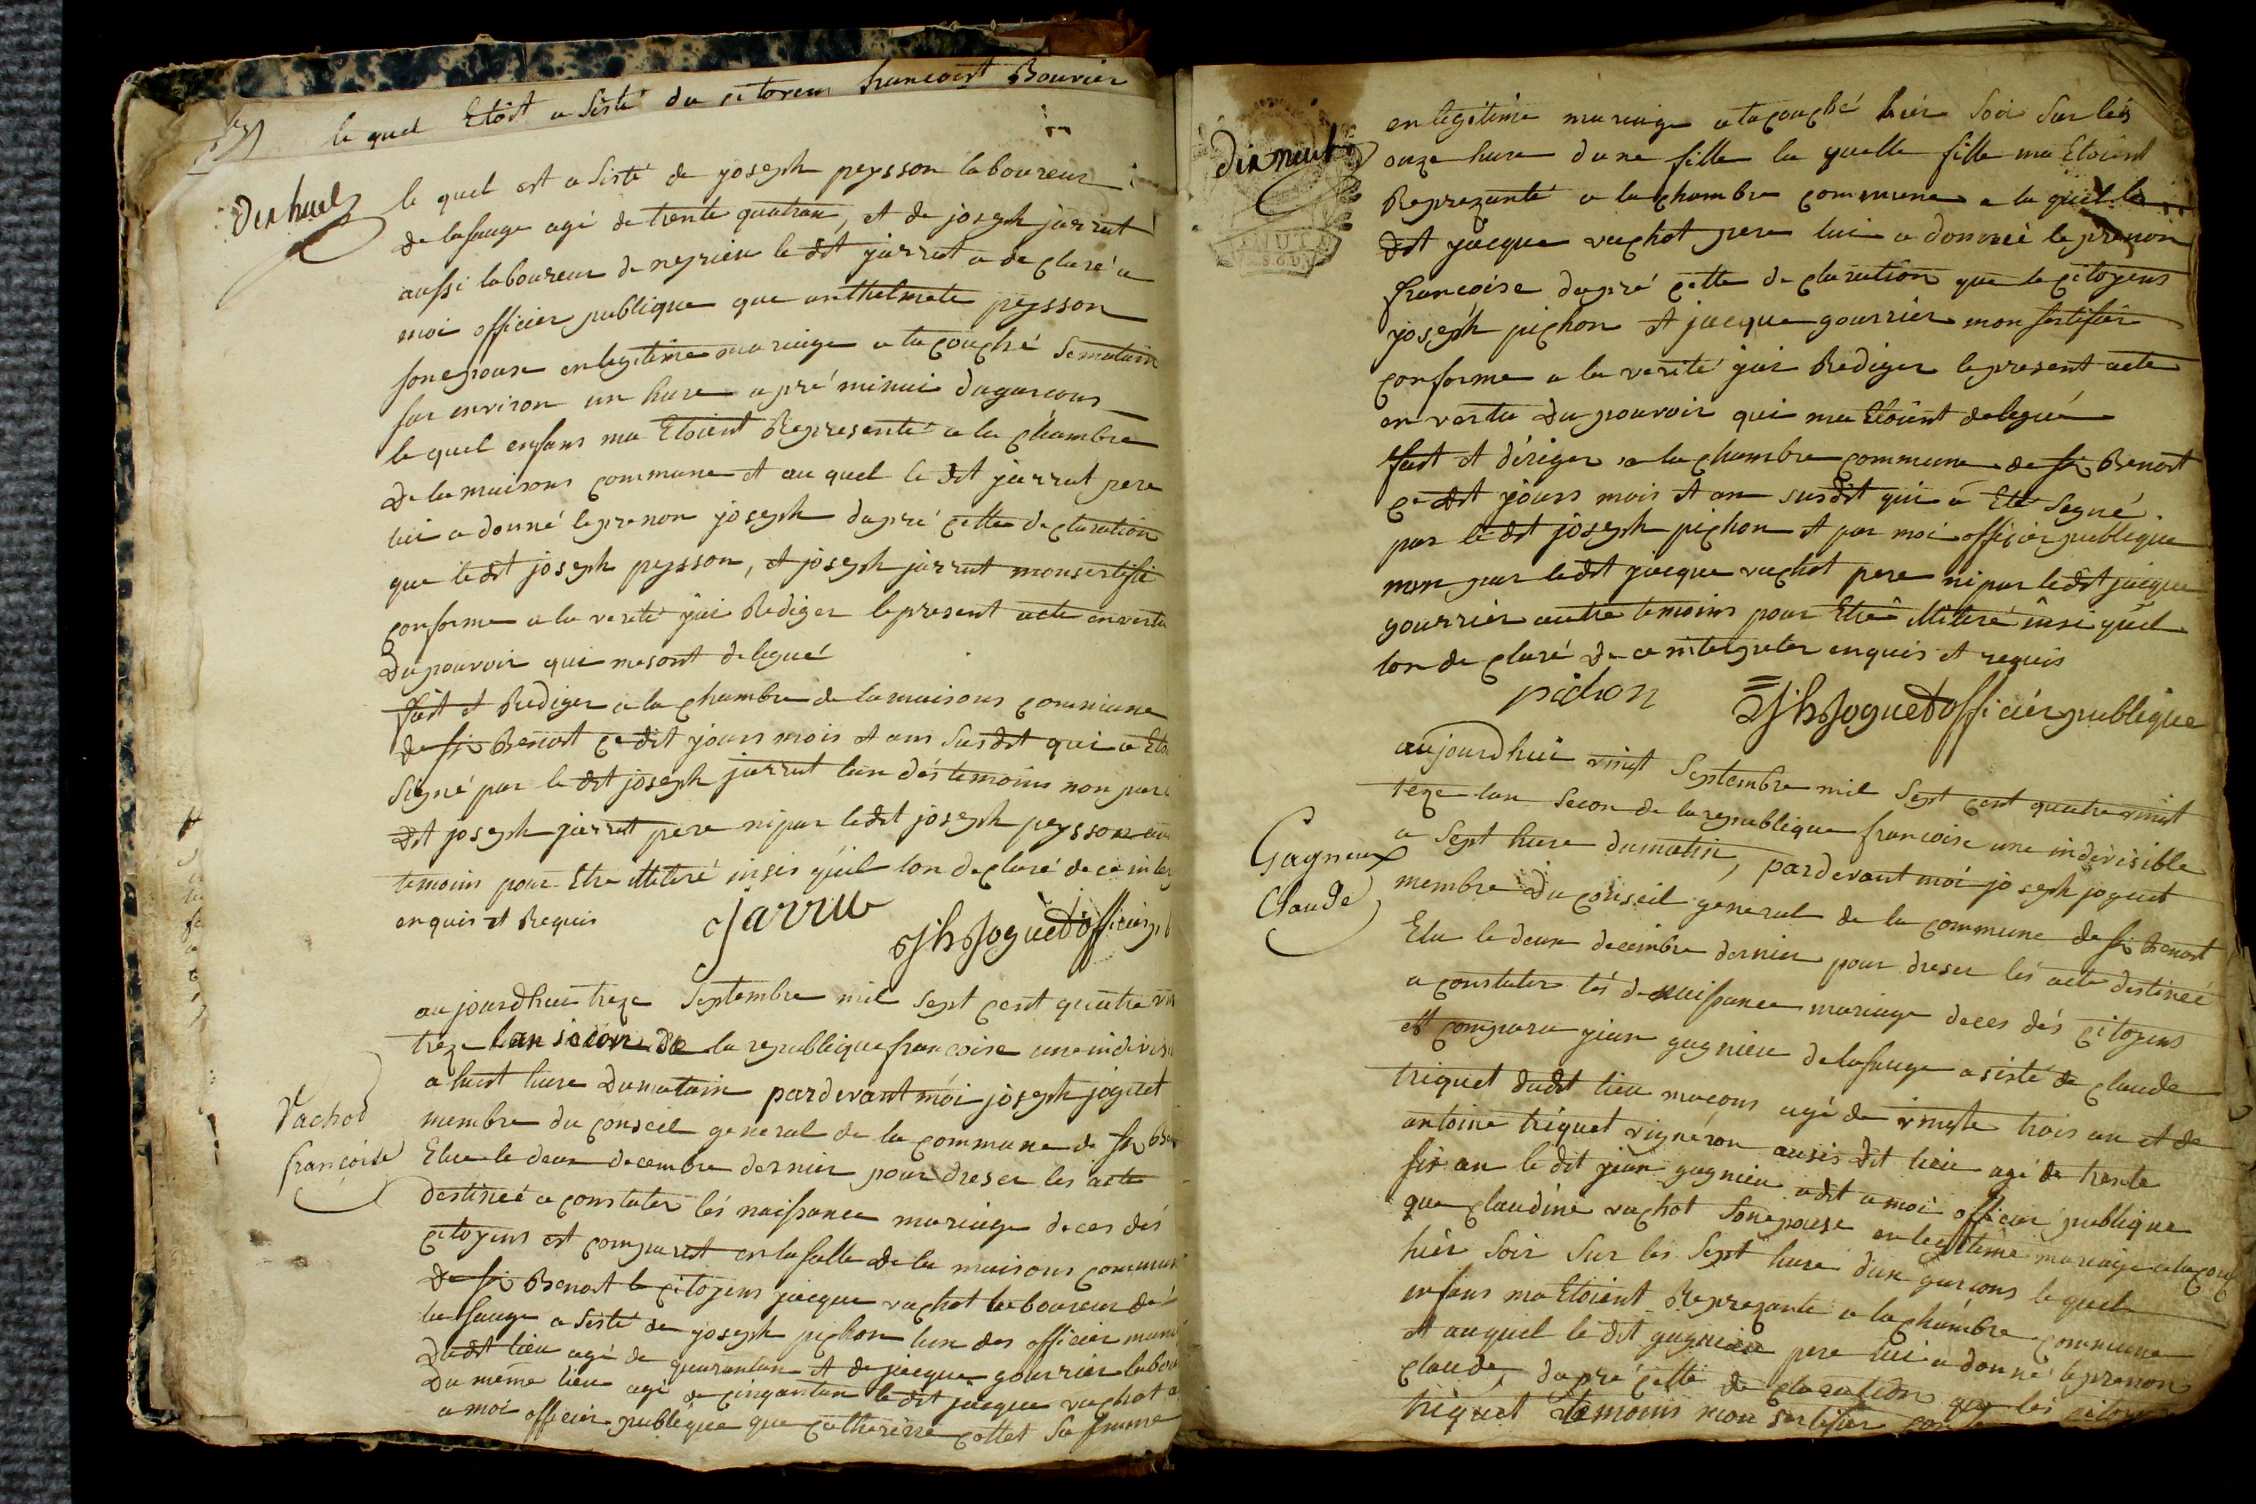 le quel Etoit a sisté du citoyens francoist Bouvier
Dix huit
le quel est a sisté de joseph peysson laboureur
de lasauge agé de trente quatran, et de joseph jarrut
aussi laboureur de neyrieu le dit jarrut a declaré a
moi officier publique que anthelmete peysson
son epouse en legitime mariage a tacouché se matain
sur environ un hure apré minui dugarcons
le quel enfans ma Etoient Representé a la chambre
de la maisons commune et au quel le dit jarrut pere
lui a donné le prenon joseph dapré cette declaration
que le dit joseph peysson, et joseph jarrut monsertifié
conforme a la verité jai Rediger le present acte en vertu
du pouvoir qui mesont delegué
fait et Rediger a la chambre de la maisons commune
de st Benoit ce dit jours mois et ans susdit qui a Eté
Signé par le dit joseph jarrut lun dés temoins non par
dit joseph jarrut pere ni par ledit joseph peysson
temoins pour Etre illiteré insis quil lon declaré de ce
enquis et Requis
Jarrut
Jh Joguet officier
aujourdhui treze Septembre mil sept cent quatre
treze lan secon de la republique francoise une
a huit hure du matain pardevant moi joseph joguet
membre du conseil general de la commune de st
Elue le deux decembre dernier pour dreser les acte
destineé a constater lés naissance mariage deces dés
citoyens est comparut en la salle de la maisons commune
de st Benoit le citoyens jacque vachot laboureur de
la sauge a sisté de joseph pichon lun des officier
dudit lieu agé de quarantan et de jacque gourrier
du méme lieu agé de cinqantan le dit jacque vachot
a moi officier publique que catherinne cottet sa femme
Vachod
françoise
Dix neuf
en legitime mariage a tacouché hier soir sur lés
onze hure dune fille la quelle fille ma Etoient
Reprezanté a la chambre commune a la quel le
dit jacque vachot pere lui a donné le prenon
francoise dapré cette declaration que le citoyens
joseph pichon et jacque gourrier mon sertifiér
conforme a la verité jai Rediger le present acte
en vertu du pouvoir qui ma Etoient delegué
fait et dériger a la chambre commune de st Benoit
ce dit jours mois et an susdit qui a Eté segné
par le dit joseph pichon et par moi officier publique
non par ledit jacque vachot pere ni par le dit jacque
gourrier autre temoins pour Etre illiteré insi quil
lon declaré de ce enquis et requis
pichon
Jh Joguet officiér publique
aujourdhui vinst Septembre mil sept cent quatre vinst
treze lan secon de la republique francoise une indivisible
a sept hure du matin, pardevant moi joseph joguet
membre du conseil general de la commune de st Benoit
Elu le deux decembre dernier pour dreser lés acte destineé
a constater lés denaissance mariage deces dés citoyens
et comparu jean gagnieu de lasauge asisté de claude
triquet dudit lieu macons agé de vinste trois an et de
antoine triquet vigneron ausis dit lieu agé de trente
six an le dit jean gagnieu adit a moi officier publique
que claudine vachot son epouse en legitime mariage
hièr soir sur les sept hure dun garcons le quel
enfans ma Etoient Reprezanté a la chambre commune
et auquel le dit gagnieu pere lui a donné le prenon
claude, dapré cette declaration que lés
triquet temoins mon sertifier
Gagneux
Claude